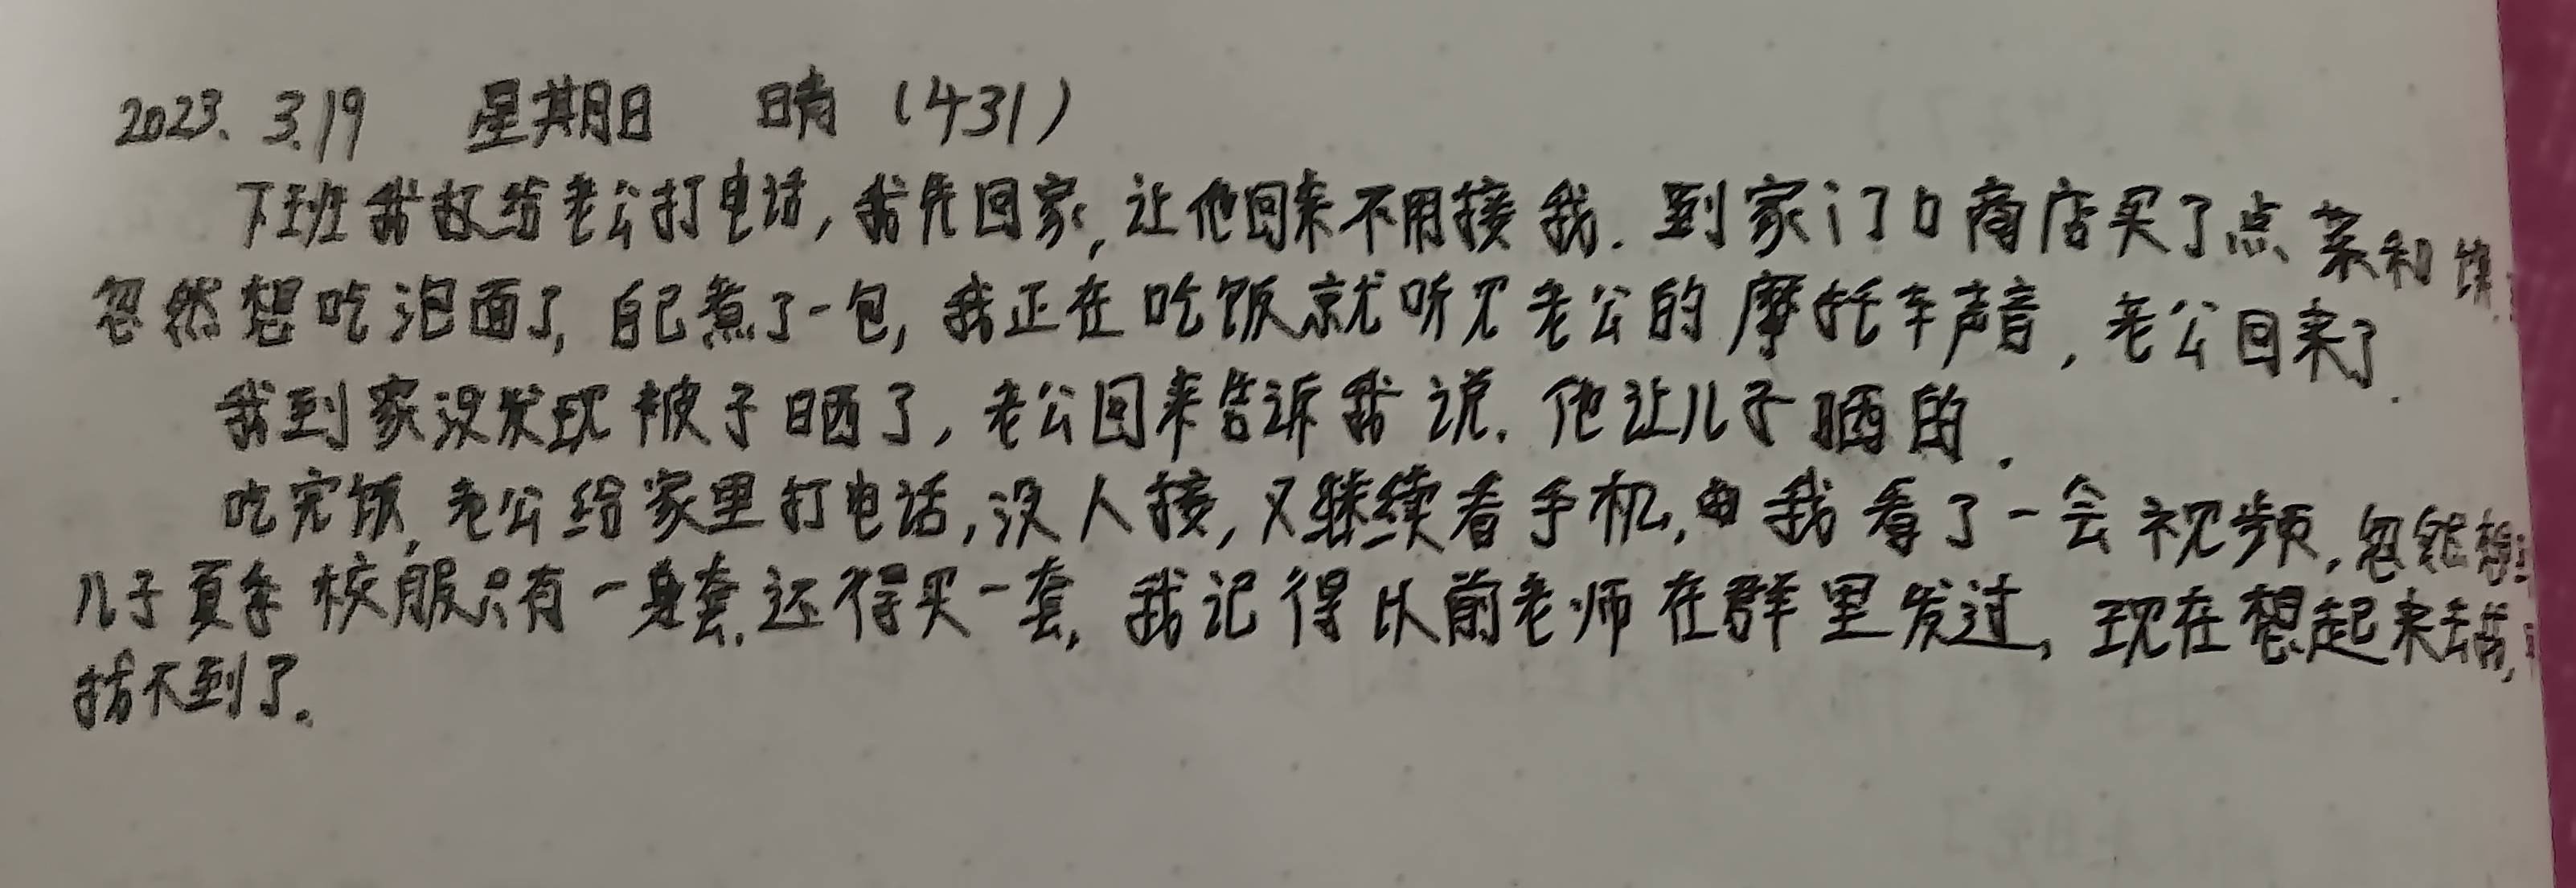 2023. 3.19 星期日 晴 (431)
下班我就给老公打电话,我先回家,让他回来不用接我.到家门口商店买了点菜和馍
忽然想吃泡面了,自己煮了一包,我正在吃饭就听见老公的摩托车声音,老公回来了.
我到家没发现被子晒了,老公回来告诉我说.他让儿子晒的.
吃完饭,老公给家里打电话,没人接,又继续看手机,我看了一会视频,忽然想
儿子夏季校服只有一套.还得买一套,我记得以前老师在群里发过,现在想起来去找,
找不到了.